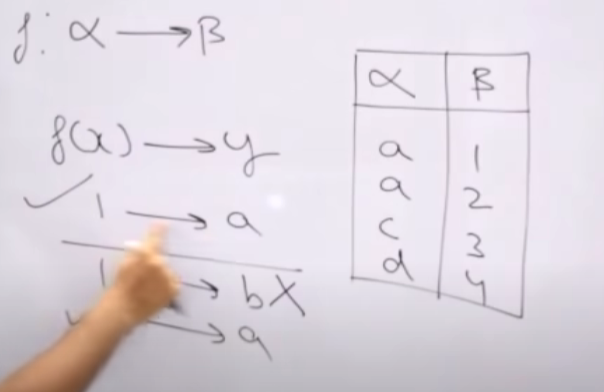 f: α → β
f(x) → y
✓ 1 → a
1 → b X
→ a
α β
a 1
a 2
c 3
d 4